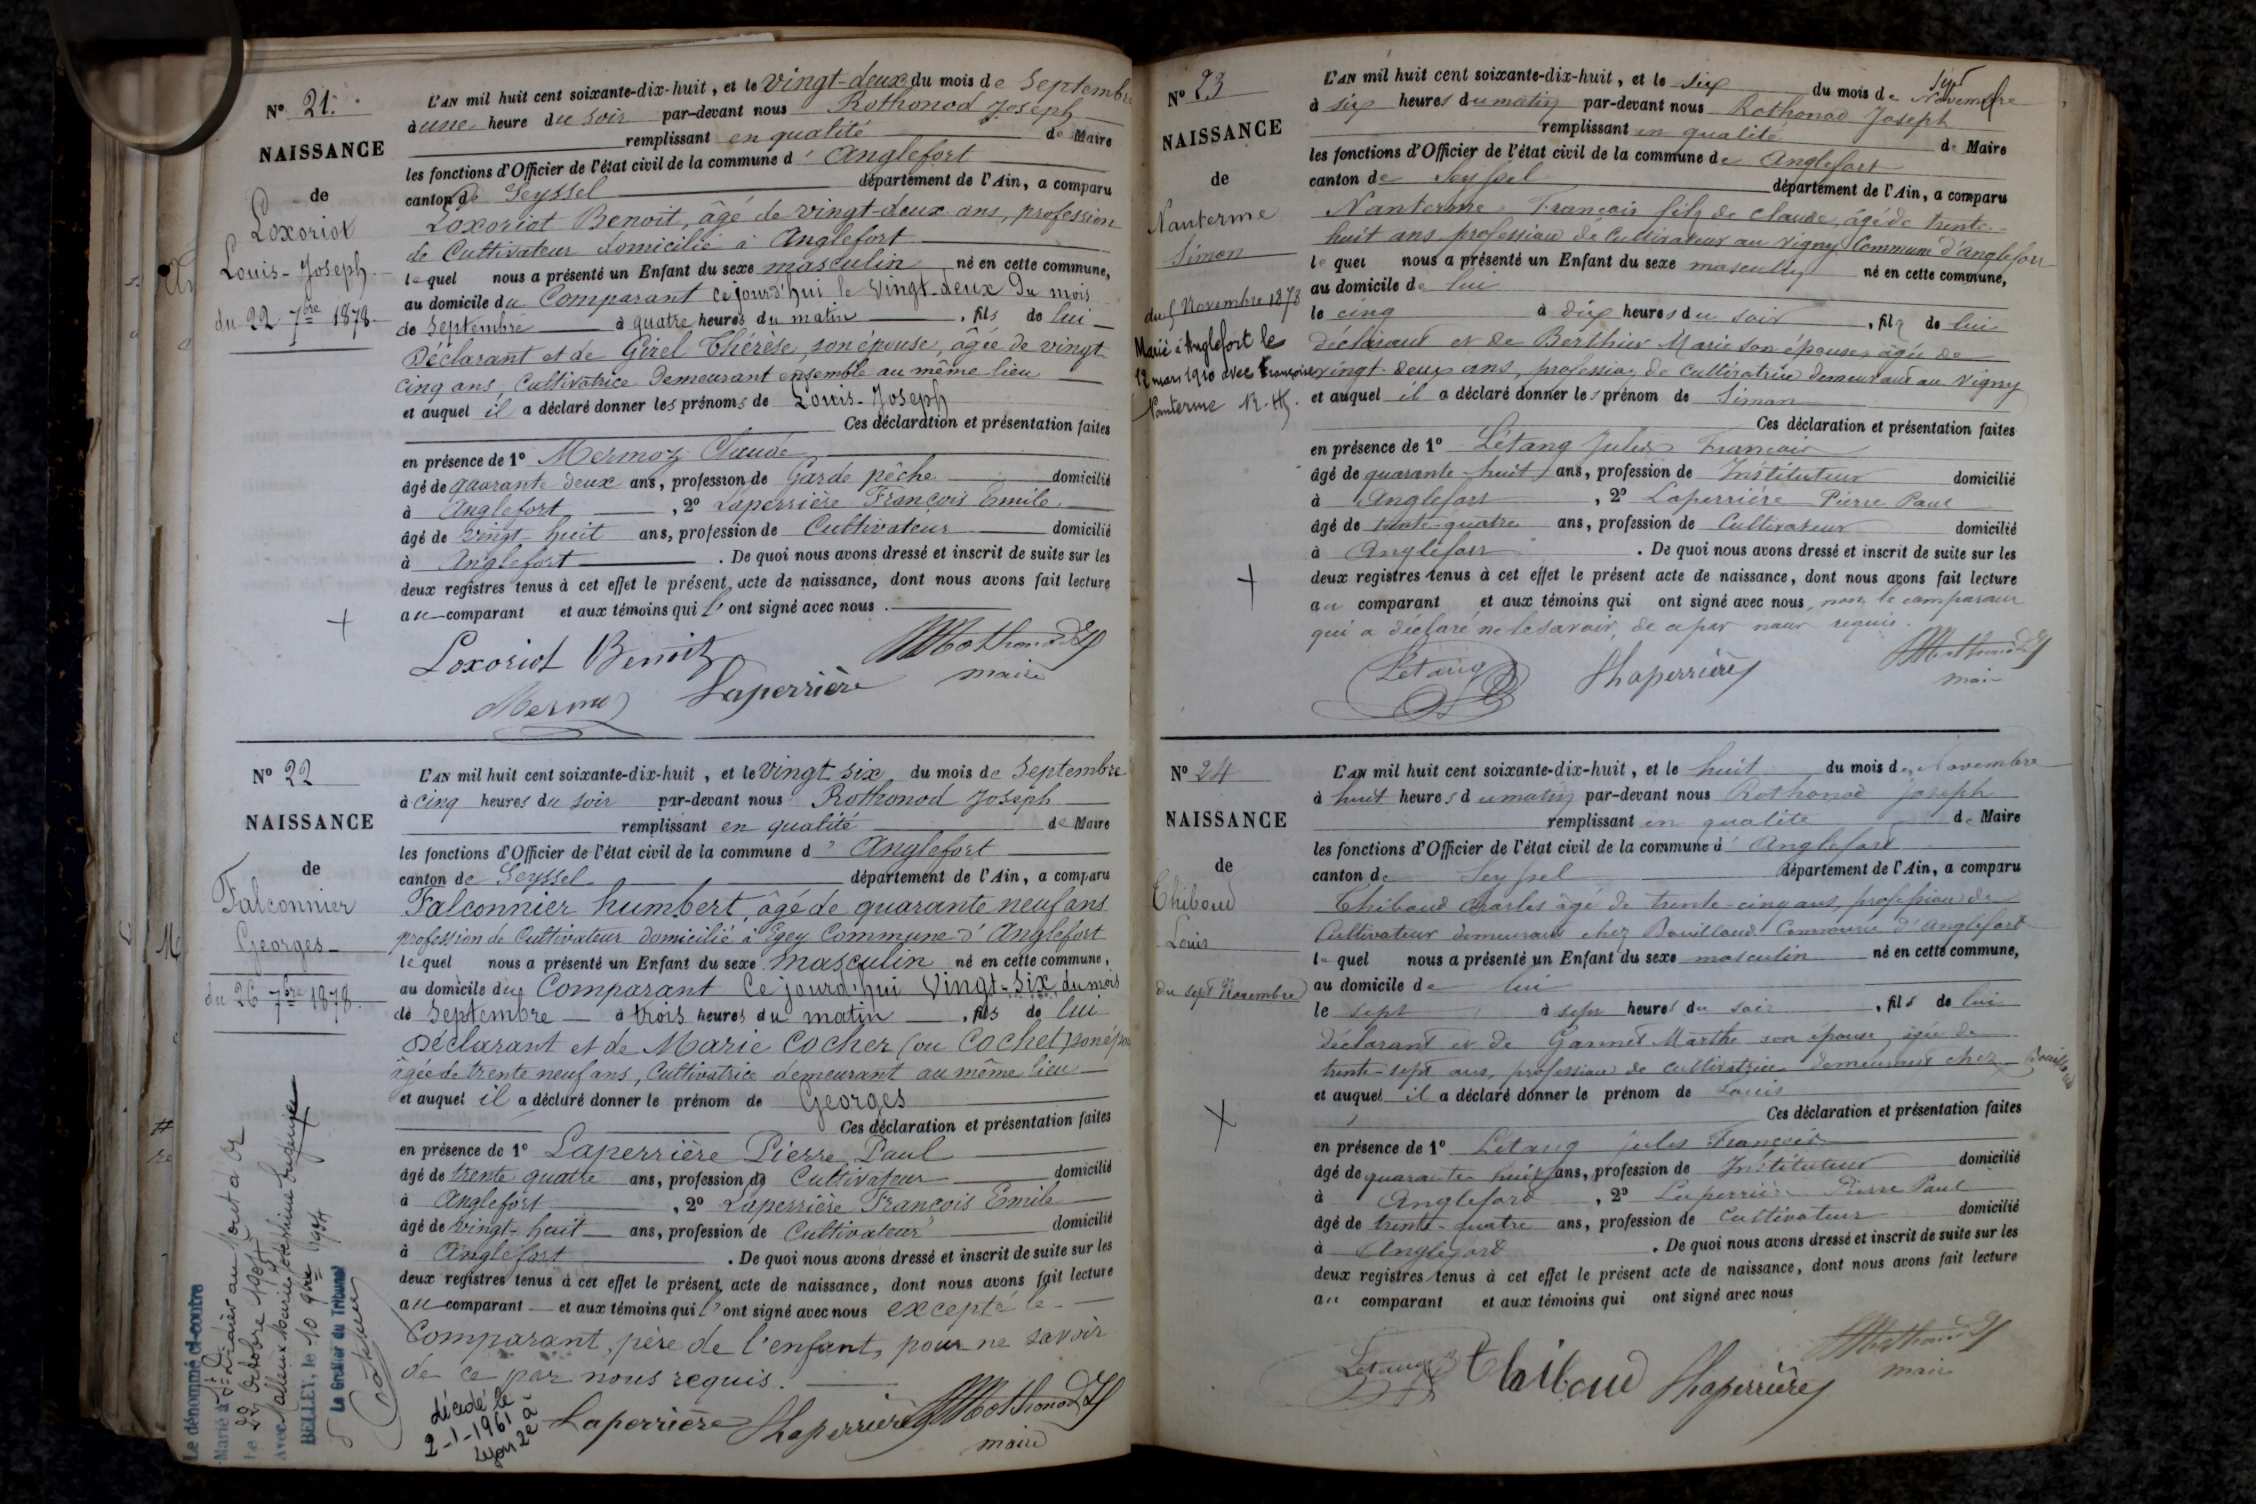 N° 21.
NAISSANCE
de
Loxoriot
Louis-Joseph
du 22 7bre 1878
L'AN mil huit cent soixante-dix-huit, et le vingt-deux du mois de Septembre
à une heure du soir par-devant nous Rothonod Joseph
remplissant en qualité de Maire
les fonctions d'Officier de l'état civil de la commune d' Anglefort
canton de Seyssel département de l'Ain, a comparu
Loxoriot Benoit, âgé de vingt-deux ans, profession
de Cultivateur domicilié à Anglefort
lequel nous a présenté un Enfant du sexe masculin né en cette commune,
au domicile du Comparant ce jourd'hui le vingt-deux du mois
de Septembre à quatre heures du matin, fils de lui
Déclarant et de Girel Thérèse, son épouse, âgée de vingt
cinq ans, Cultivatrice demeurant ensemble au même lieu
et auquel il a déclaré donner les prénoms de Louis-Joseph
Ces déclaration et présentation faites
en présence de 1° Mermoz Claude
âgé de quarante deux ans, profession de Garde pêche domicilié
à Anglefort, 2° Laperrière François Emile
âgé de vingt huit ans, profession de Cultivateur domicilié
à Anglefort. De quoi nous avons dressé et inscrit de suite sur les
deux registres tenus à cet effet le présent acte de naissance, dont nous avons fait lecture
au comparant et aux témoins qui l'ont signé avec nous.
Loxoriot Benoit
Rothonod
maire
Laperrière
N° 22
NAISSANCE
de
Falconnier
Georges
du 26 7bre 1878
L'AN mil huit cent soixante-dix-huit, et le vingt six du mois de Septembre
à cinq heures du soir par-devant nous Rothonod Joseph
remplissant en qualité de Maire
les fonctions d'Officier de l'état civil de la commune d' Anglefort
canton de Seyssel département de l'Ain, a comparu
Falconnier humbert, âgé de quarante neuf ans
profession de Cultivateur domicilié à Commune d'Anglefort
lequel nous a présenté un Enfant du sexe masculin né en cette commune,
au domicile du Comparant ce jourd'hui Vingt-Six du mois
de Septembre à trois heures du matin, fils de lui
Déclarant et de Marie Cocher (ou Cochet) son
âgée de trente neuf ans, Cultivatrice demeurant au même lieu
et auquel il a déclaré donner le prénom de Georges
Ces déclaration et présentation faites
en présence de 1° Laperrière Pierre Paul
âgé de trente quatre ans, profession de Cultivateur domicilié
à Anglefort, 2° Laperrière François Emile
âgé de vingt-huit ans, profession de Cultivateur domicilié
à Anglefort. De quoi nous avons dressé et inscrit de suite sur les
deux registres tenus à cet effet le présent acte de naissance, dont nous avons fait lecture
au comparant et aux témoins qui l'ont signé avec nous excepté le
Comparant, père de l'enfant, pour ne savoir
de ce par nous requis.
Laperrière Laperrière Rothonod
maire
décédé le
2-1-1961 à
Lyon 2e
Le dénommé ci-contre
Marié à
le 29 Octobre 1904
Avec Josephine Eugénie
BELLEY, le 10 9bre 1904
Le Greffier du Tribunal
N° 23
NAISSANCE
de
Nanterme
Simon
du 5 Novembre 1878
Marié à Anglefort le
12 mars 1910 avec Françoise
Nanterme
L'AN mil huit cent soixante-dix-huit, et le six du mois de Novembre
à six heures du matin par-devant nous Rothonod Joseph
remplissant en qualité de Maire
les fonctions d'Officier de l'état civil de la commune de Anglefort
canton de Seyssel département de l'Ain, a comparu
Nanterme François fils de Claude, âgé de trente-
huit ans profession de Cultivateur au Vigny Commune d'anglefort
lequel nous a présenté un Enfant du sexe masculin né en cette commune,
au domicile de lui
le cinq à dix heures du soir, fils de lui
déclarant et de Berthier Marie son épouse, âgée de
vingt-deux ans, profession de cultivatrice demeurant au Vigny
et auquel il a déclaré donner les prénom de Simon
Ces déclaration et présentation faites
en présence de 1° Létang Jules François
âgé de quarante-huit ans, profession de Instituteur domicilié
à Anglefort, 2° Laperrière Pierre Paul
âgé de trente-quatre ans, profession de Cultivateur domicilié
à Anglefort. De quoi nous avons dressé et inscrit de suite sur les
deux registres tenus à cet effet le présent acte de naissance, dont nous avons fait lecture
au comparant et aux témoins qui ont signé avec nous, non le comparant
qui a déclaré ne le savoir, de ce par nous requis.
Letang Laperrière Rothonod
maire
N° 24
NAISSANCE
de
Thiboud
Louis
du sept Novembre
L'AN mil huit cent soixante-dix-huit, et le huit du mois de Novembre
à huit heures du matin par-devant nous Rothonod Joseph
remplissant en qualité de Maire
les fonctions d'Officier de l'état civil de la commune d' Anglefort
canton de Seyssel département de l'Ain, a comparu
Thiboud Charles âgé de trente-cinq ans, profession de
Cultivateur demeurant chez Bouilloud Commune d'Anglefort
lequel nous a présenté un Enfant du sexe masculin né en cette commune,
au domicile de lui
le sept à sept heures du soir, fils de lui
déclarant et de Marthe son épouse, âgée de
trente-sept ans, profession de cultivatrice demeurant chez Bouilloud
et auquel il a déclaré donner le prénom de Louis
Ces déclaration et présentation faites
en présence de 1° Létang jules François
âgé de quarante huit ans, profession de Instituteur domicilié
à Anglefort, 2° Laperrière Pierre Paul
âgé de trente-quatre ans, profession de Cultivateur domicilié
à Anglefort. De quoi nous avons dressé et inscrit de suite sur les
deux registres tenus à cet effet le présent acte de naissance, dont nous avons fait lecture
au comparant et aux témoins qui ont signé avec nous
Letang Thiboud Laperrière Rothonod
maire